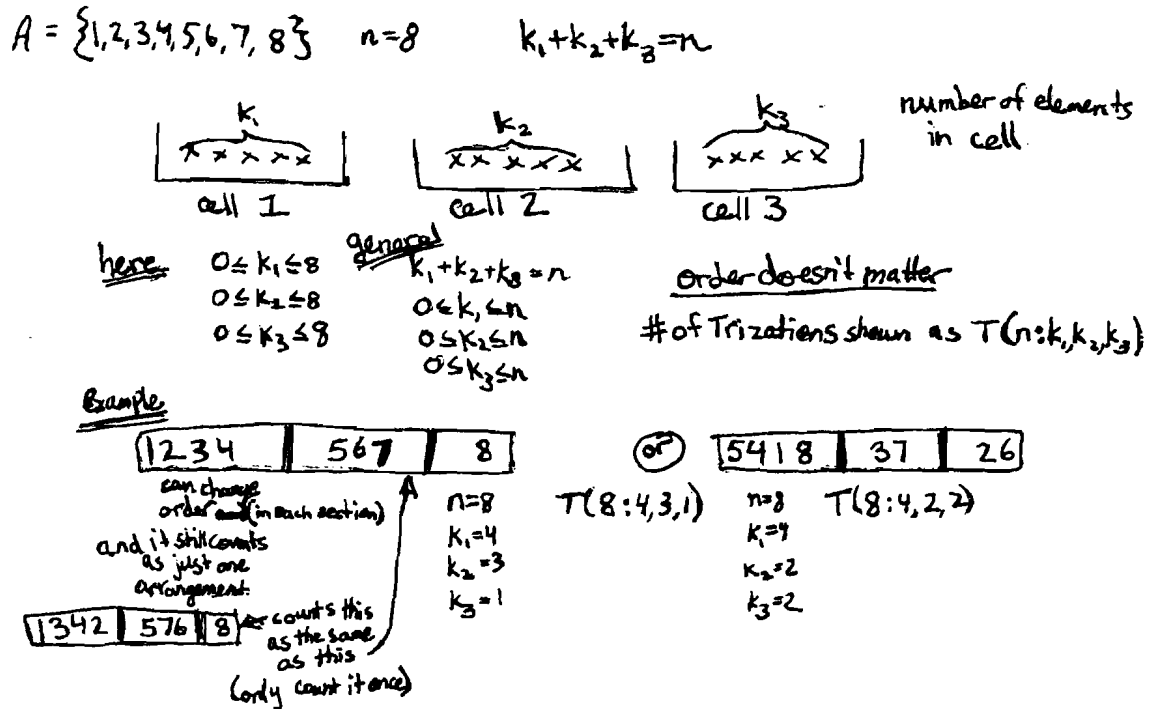 A = {1,2,3,4,5,6,7, 8} n=8 k₁+k₂+k₃=n
k₁ k₂ k₃
x x x x x x x x x x x x x x x
number of elements
in cell
cell 1 cell 2 cell 3
here
0≤k₁≤8
0≤k₂≤8
0≤k₃≤8
general
k₁+k₂+k₃=n
0≤k₁≤n
0≤k₂≤n
0≤k₃≤n
order doesn't matter
# of Trizations shown as T(n:k₁,k₂,k₃)
Example
1234 567 8
or
5418 37 26
can change
order (in each section)
and it still counts
as just one
arrangement.
n=8
k₁=4
k₂=3
k₃=1
T(8:4,3,1)
n=8
k₁=4
k₂=2
k₃=2
T(8:4,2,2)
1342 576 8
counts this
as the same
as this
(only count it once)